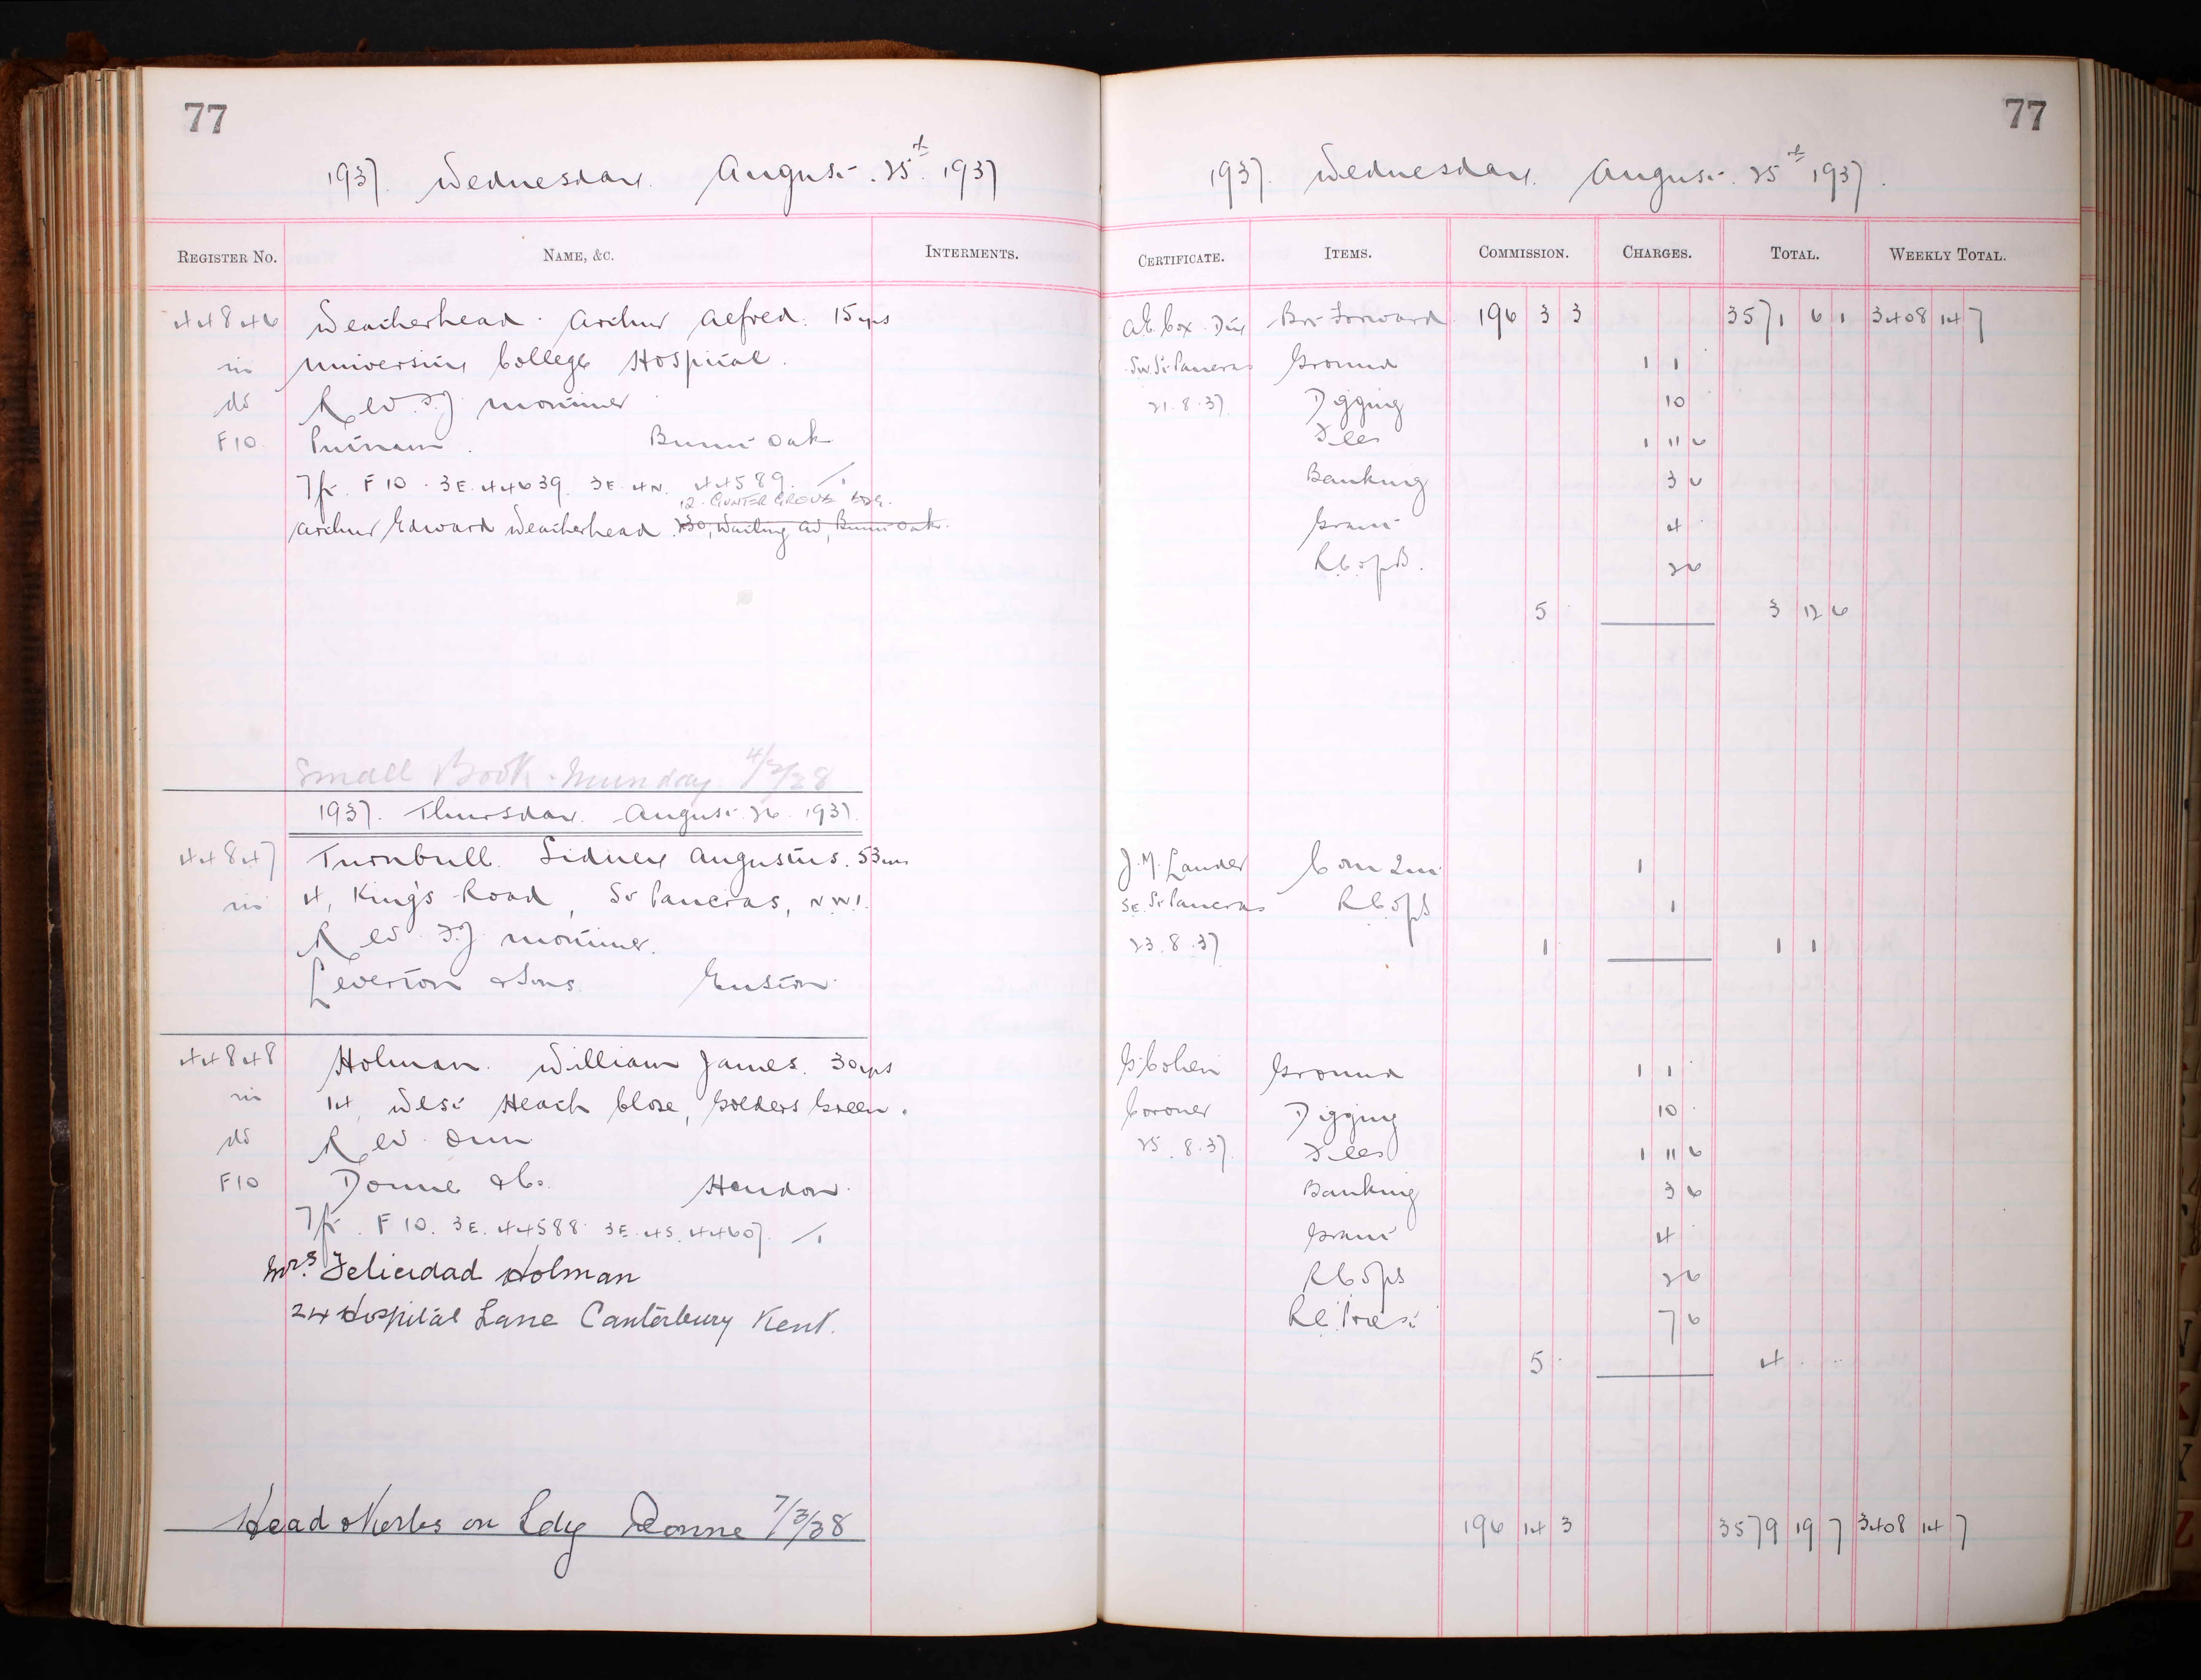 77
1937. Wednesday. August. 25th. 1937
REGISTER NO. NAME, &C. INTERMENTS.
44846 Weatherhead. Arthur Alfred. 15 yrs
in University College Hospital.
do Rev. F.J. Mortimer
F10. Putnam. Burnt Oak
7ft. F10. 3E. 44639. 3E. 4N. 44589.
12. GUNTER GROVE EDG.
Arthur Edward Weatherhead. 230, Watling Av, Burnt Oak.
Small Book. Munday 4/3/38
1937. Thursday. August. 26. 1937.
44847 Turnbull. Sidney Augustus. 53 yrs
in 4, King's Road, St Pancras, N.W.1.
Rev. F.J. Mortimer.
Leverton & Sons. Euston.
44848 Holman. William James. 30 yrs
in 14 West Heath Close, Golders Green.
do Rev.
F10 Donne & Co. Hendon.
7ft. F10. 3E. 44588. 3E. 4S. 44607.
Mrs. Felicidad Holman
24 Hospital Lane Canterbury Kent.
Head & Kerbs on Ldg Donne 7/3/38
77
1937. Wednesday. August. 25th 1937.
CERTIFICATE. ITEMS. COMMISSION. CHARGES. TOTAL. WEEKLY TOTAL.
A.E. Cox. Brt Forward 196 3 3 3571 6 1 3408 14 7
SW. St Pancras Ground 1 1
21.8.37. Digging 10
Fees 1 11 6
Banking 3 6
Grant 4
R.C of B. 2 6
5 3 12 6
J.M. Lander Com Int 1
SE. St Pancras R.C of B 1
23.8.37 1 1 1
G. Cohen Ground 1 1
Coroner Digging 10
25.8.37. Fees 1 11 6
Banking 3 6
Grant 4
R.C of B 2 6
Re. Priest 7 6
5 4
196 14 3 3579 19 7 3408 14 7